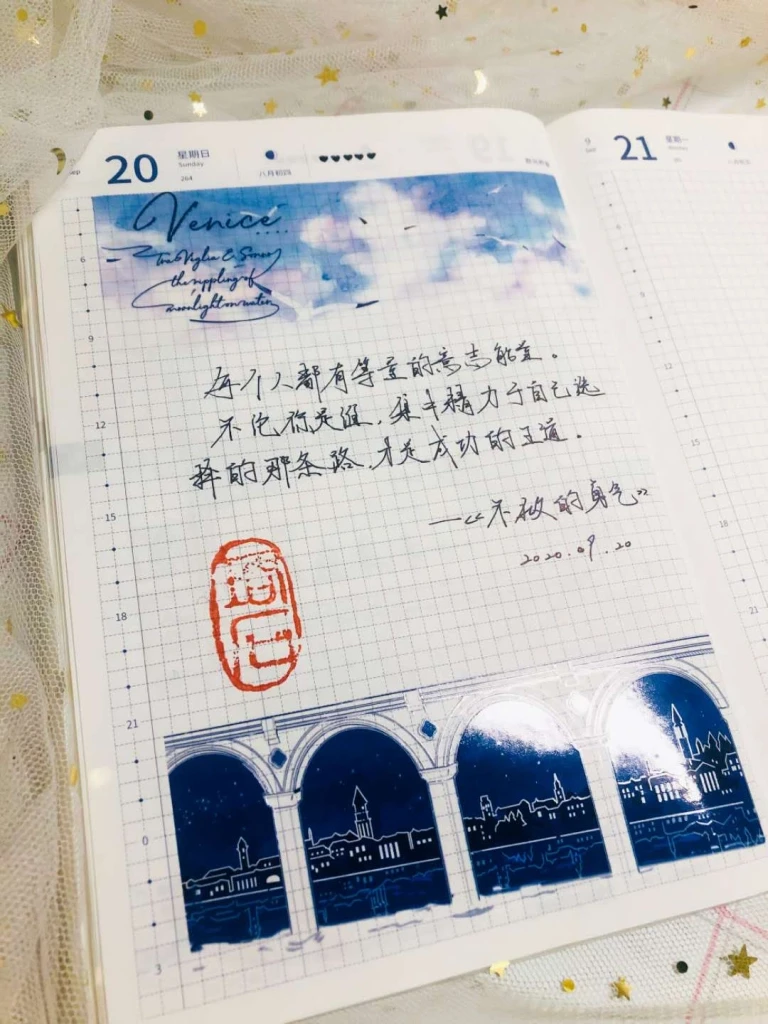 20
星期日
Sunday
264
八月初四
9
Sep
21
星期一
Venice
the rippling of
moonlight on water
6
9
12
15
18
21
0
3
每个人都有等量的意志能量。
不论你是谁,集中精力于自己选
择的那条路,才是成功的王道。
—《不败的勇气》
2020.09.20
12
15
18
21